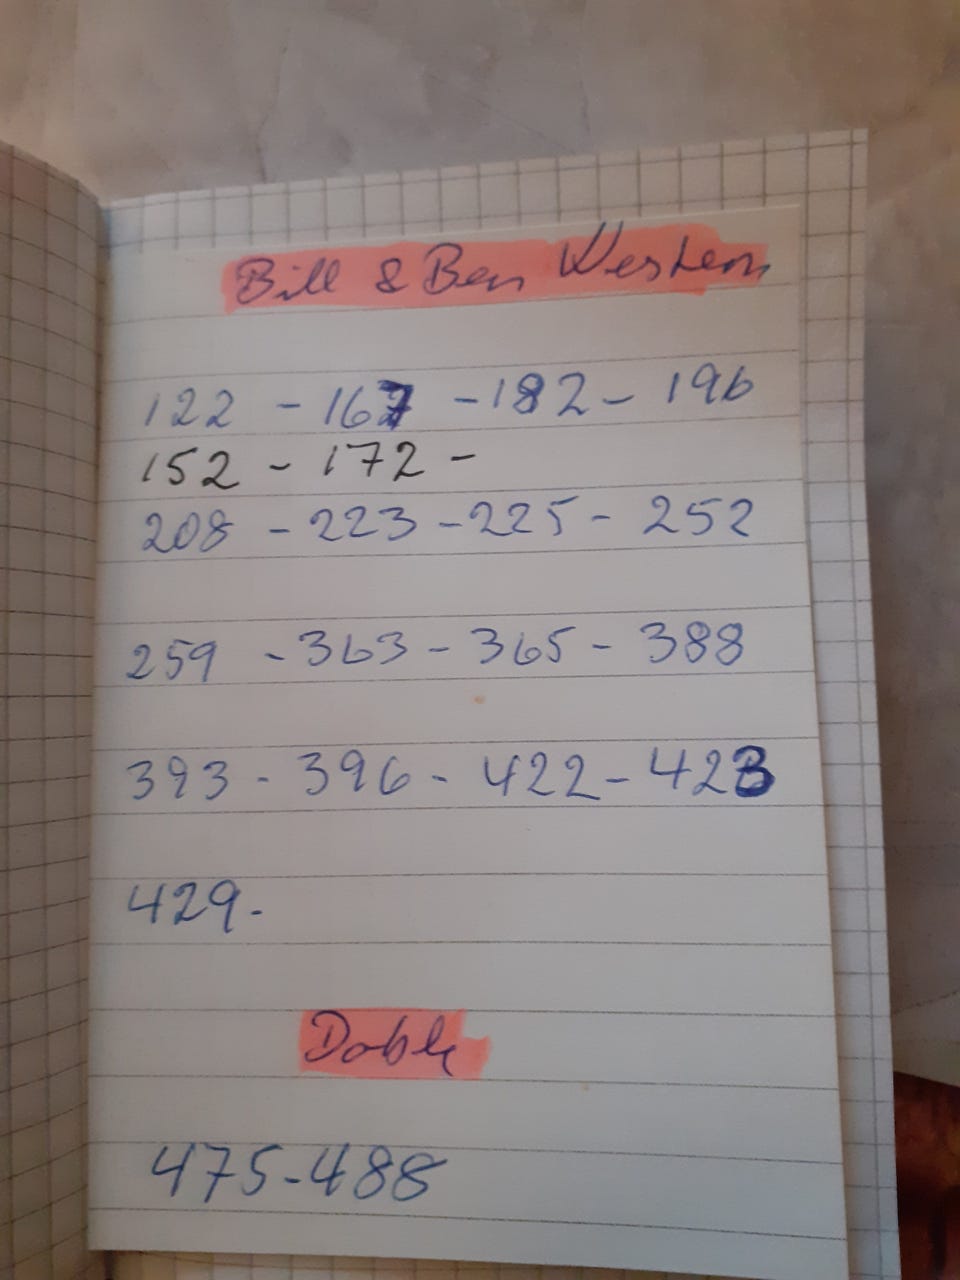 Bill & Ben Western
122 - 167 - 182 - 196
152 - 172 -
208 - 223 - 225 - 252
259 - 363 - 365 - 388
393 - 396 - 422 - 423
429.
Doble
475-488